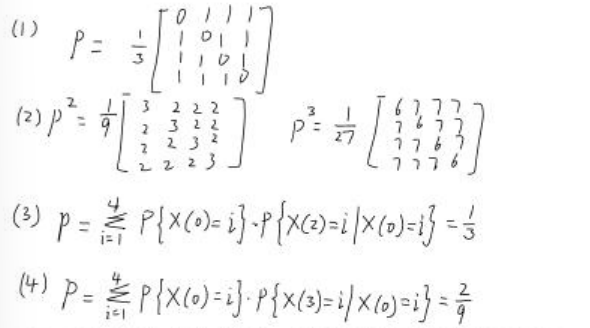 (1) P = 1/3 [0 1 1 1; 1 0 1 1; 1 1 0 1; 1 1 1 0]
(2) P² = 1/9 [3 2 2 2; 2 3 2 2; 2 2 3 2; 2 2 2 3] P³ = 1/27 [6 7 7 7; 7 6 7 7; 7 7 6 7; 7 7 7 6]
(3) p = Σ_{i=1}^{4} P{X(0)=i}·P{X(2)=i|X(0)=i} = 1/3
(4) P = Σ_{i=1}^{4} P{X(0)=i}·P{X(3)=i|X(0)=i} = 2/9